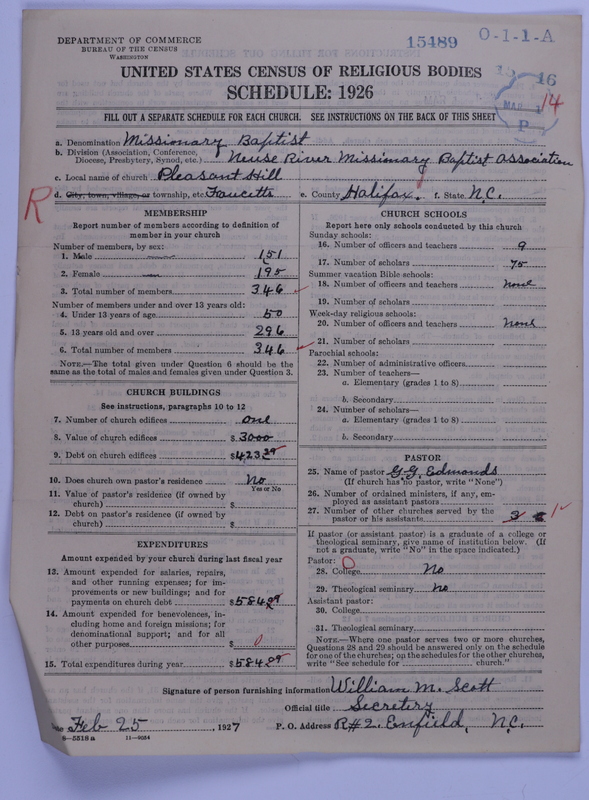 DEPARTMENT OF COMMERCE
BUREAU OF THE CENSUS
WASHINGTON
15489
O-I-1-A
16
MAR
P
14
UNITED STATES CENSUS OF RELIGIOUS BODIES
SCHEDULE: 1926
FILL OUT A SEPARATE SCHEDULE FOR EACH CHURCH. SEE INSTRUCTIONS ON THE BACK OF THIS SHEET
a. Denomination Missionary Baptist
b. Division (Association, Conference, Diocese, Presbytery, Synod, etc.) Neuse River Missionary Baptist Association
c. Local name of church Pleasant Hill
R
d. City, town, village, or township, etc. Faucetts e. County Halifax. f. State N.C.
MEMBERSHIP
Report number of members according to definition of
member in your church
Number of members, by sex:
1. Male 151
2. Female 195
3. Total number of members 346
Number of members under and over 13 years old:
4. Under 13 years of age 50
5. 13 years old and over 296
6. Total number of members 346
NOTE.—The total given under Question 6 should be
same as the total of males and females given under Question 3.
CHURCH BUILDINGS
See instructions, paragraphs 10 to 12
7. Number of church edifices one
8. Value of church edifices $ 3000
9. Debt on church edifices $ 423
10. Does church own pastor's residence? No
Yes or No
11. Value of pastor's residence (if owned by
church) $
12. Debt on pastor's residence (if owned by
church) $
EXPENDITURES
Amount expended by your church during last fiscal year
13. Amount expended for salaries, repairs,
and other running expenses; for im-
provements or new buildings; and for
payments on church debt $ 584.09
14. Amount expended for benevolences, in-
cluding home and foreign missions; for
denominational support; and for all
other purposes $ 0
15. Total expenditures during year $ 584.09
CHURCH SCHOOLS
Report here only schools conducted by this church
Sunday schools:
16. Number of officers and teachers 9
17. Number of scholars 75
Summer vacation Bible schools:
18. Number of officers and teachers none
19. Number of scholars
Week-day religious schools:
20. Number of officers and teachers none
21. Number of scholars
Parochial schools:
22. Number of administrative officers
23. Number of teachers—
a. Elementary (grades 1 to 8)
b. Secondary
24. Number of scholars—
a. Elementary (grades 1 to 8)
b. Secondary
PASTOR
25. Name of pastor G.G. Edmonds
(If church has no pastor, write "None")
26. Number of ordained ministers, if any, em-
ployed as assistant pastors
27. Number of other churches served by the
pastor or his assistants 3
If pastor (or assistant pastor) is a graduate of a college or
theological seminary, give name of institution below. (If
not a graduate, write "No" in the space indicated.)
Pastor:
28. College No
29. Theological seminary No
Assistant pastor:
30. College
31. Theological seminary
NOTE.—Where one pastor serves two or more churches,
Questions 28 and 29 should be answered only on the schedule
for one of the churches; on the schedules for the other churches,
write "See schedule for church."
Signature of person furnishing information William M. Scott
Official title Secretery
Date Feb 25, 1927 P. O. Address R#2 Enfield, N.C.
8-5518 a 11-9054